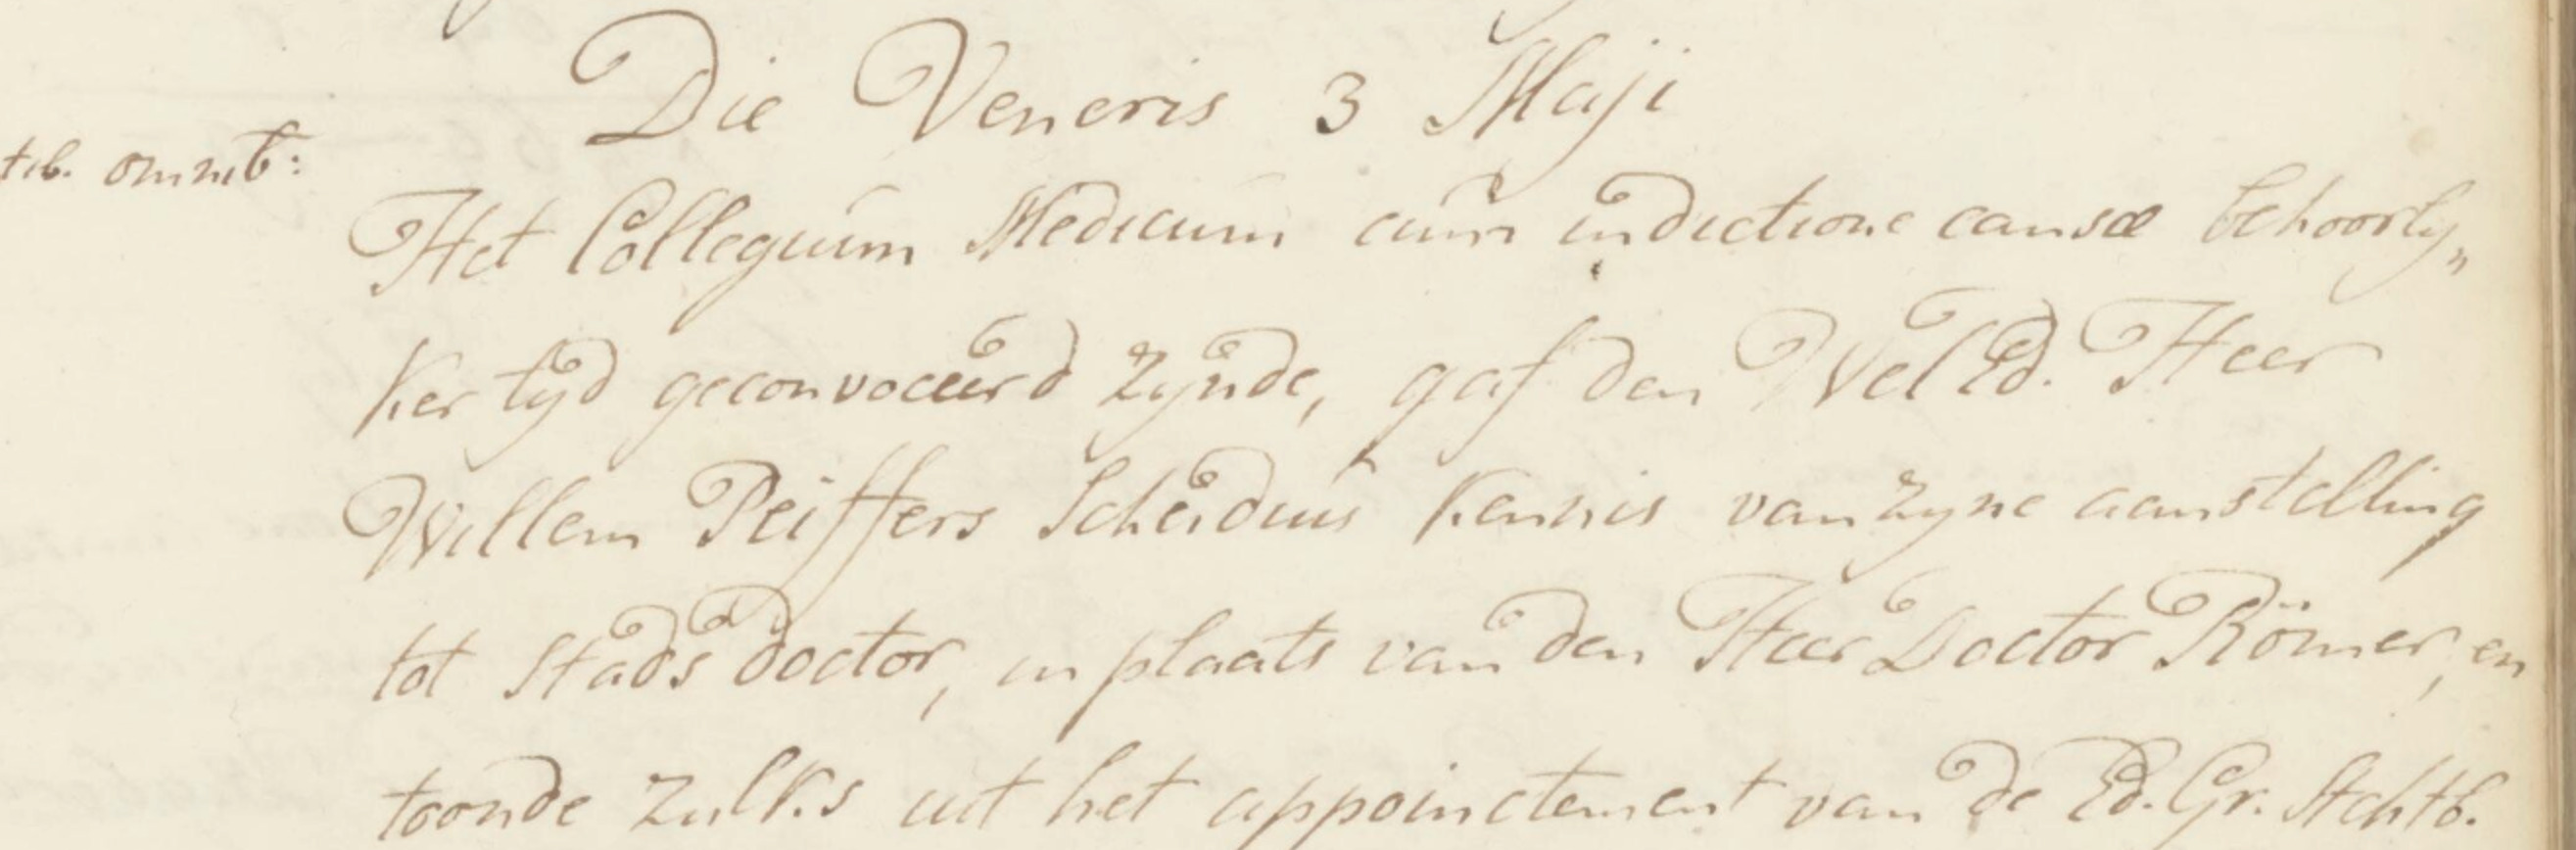 Die Veneris 3 Maji
tib. omnib:
Het Collegium Medicum cum indictione causæ behoorly„
ker tyd geconvoceerd zynde, gaf den Wel Ed. Heer
Willem Peiffers Scheidius kennis van zyne aanstelling
tot Stads doctor, in plaats van den Heer Doctor Römer, en
toonde zulks uit het appoinctement van de Ed. Gr. Achtb.